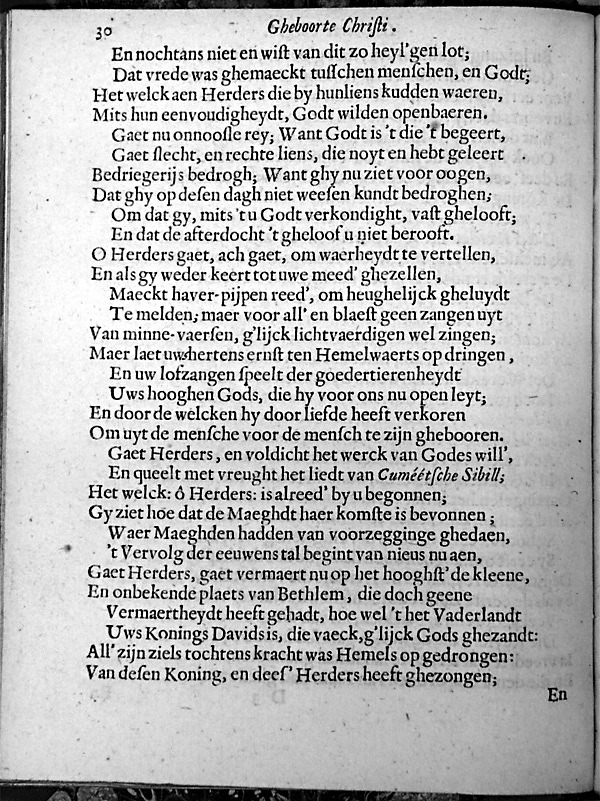 30 Gheboorte Christi.
En nochtans niet en wist van dit zo heyl'gen lot;
Dat vrede was ghemaeckt tusschen menschen, en Godt;
Het welck aen Herders die by hunliens kudden waeren,
Mits hun eenvoudigheydt, Godt wilden openbaeren.
Gaet nu onnoosle rey; Want Godt is 't die 't begeert,
Gaet slecht, en rechte liens, die noyt en hebt geleert
Bedriegerijs bedrogh; Want ghy nu ziet voor oogen,
Dat ghy op desen dagh niet weesen kundt bedroghen;
Om dat gy, mits 't u Godt verkondight, vast ghelooft;
En dat de afterdocht 't gheloof u niet berooft.
O Herders gaet, ach gaet, om waerheydt te vertellen,
En als gy weder keert tot uwe meed' ghezellen,
Maeckt haver-pijpen reed', om heughelijck gheluydt
Te melden; maer voor all' en blaest geen zangen uyt
Van minne-vaersen, g'lijck lichtvaerdigen wel zingen;
Maer laet uws hertens ernst ten Hemelwaerts op dringen,
En uw lofzangen speelt der goedertierenheydt
Uws hooghen Gods, die hy voor ons nu open leyt;
En door de welcken hy door liefde heeft verkoren
Om uyt de mensche voor de mensch te zijn ghebooren.
Gaet Herders, en voldicht het werck van Godes will',
En queelt met vreught het liedt van Cuméétsche Sibill;
Het welck: ô Herders: is alreed' by u begonnen;
Gy ziet hoe dat de Maeghdt haer komste is bevonnen;
Waer Maeghden hadden van voorzegginge ghedaen,
't Vervolg der eeuwens tal begint van nieus nu aen,
Gaet Herders, gaet vermaert nu op het hooghst' de kleene,
En onbekende plaets van Bethlem, die doch geene
Vermaertheydt heeft gehadt, hoe wel 't het Vaderlandt
Uws Konings Davids is, die vaeck, g'lijck Gods ghezandt:
All' zijn ziels tochtens kracht was Hemels op gedrongen:
Van desen Koning, en dees' Herders heeft ghezongen;
En